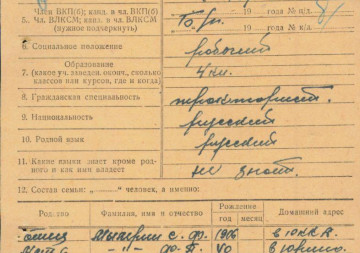 Член ВКП(б); канд. в чл. ВКП(б) 19 года № п/б.
5. Чл. ВЛКСМ; канд. в чл. ВЛКСМ
(нужное подчеркнуть) 19 года № к/б.
6. Социальное положение рабочий
Образование
7. (какое уч. заведен. оконч., сколько 4 кл.
классов или курсов, где и когда)
8. Гражданская специальность тракторист.
9. Национальность русский
10. Родной язык русский
11. Какие языки знает кроме родного и как ими владеет не знает.
12. Состав семьи: „ “ человек, а именно:
Родство Фамилия, имя и отчество Рождение год месяц Домашний адрес
отец С. Ф. 1906 в РККА
мать —"—